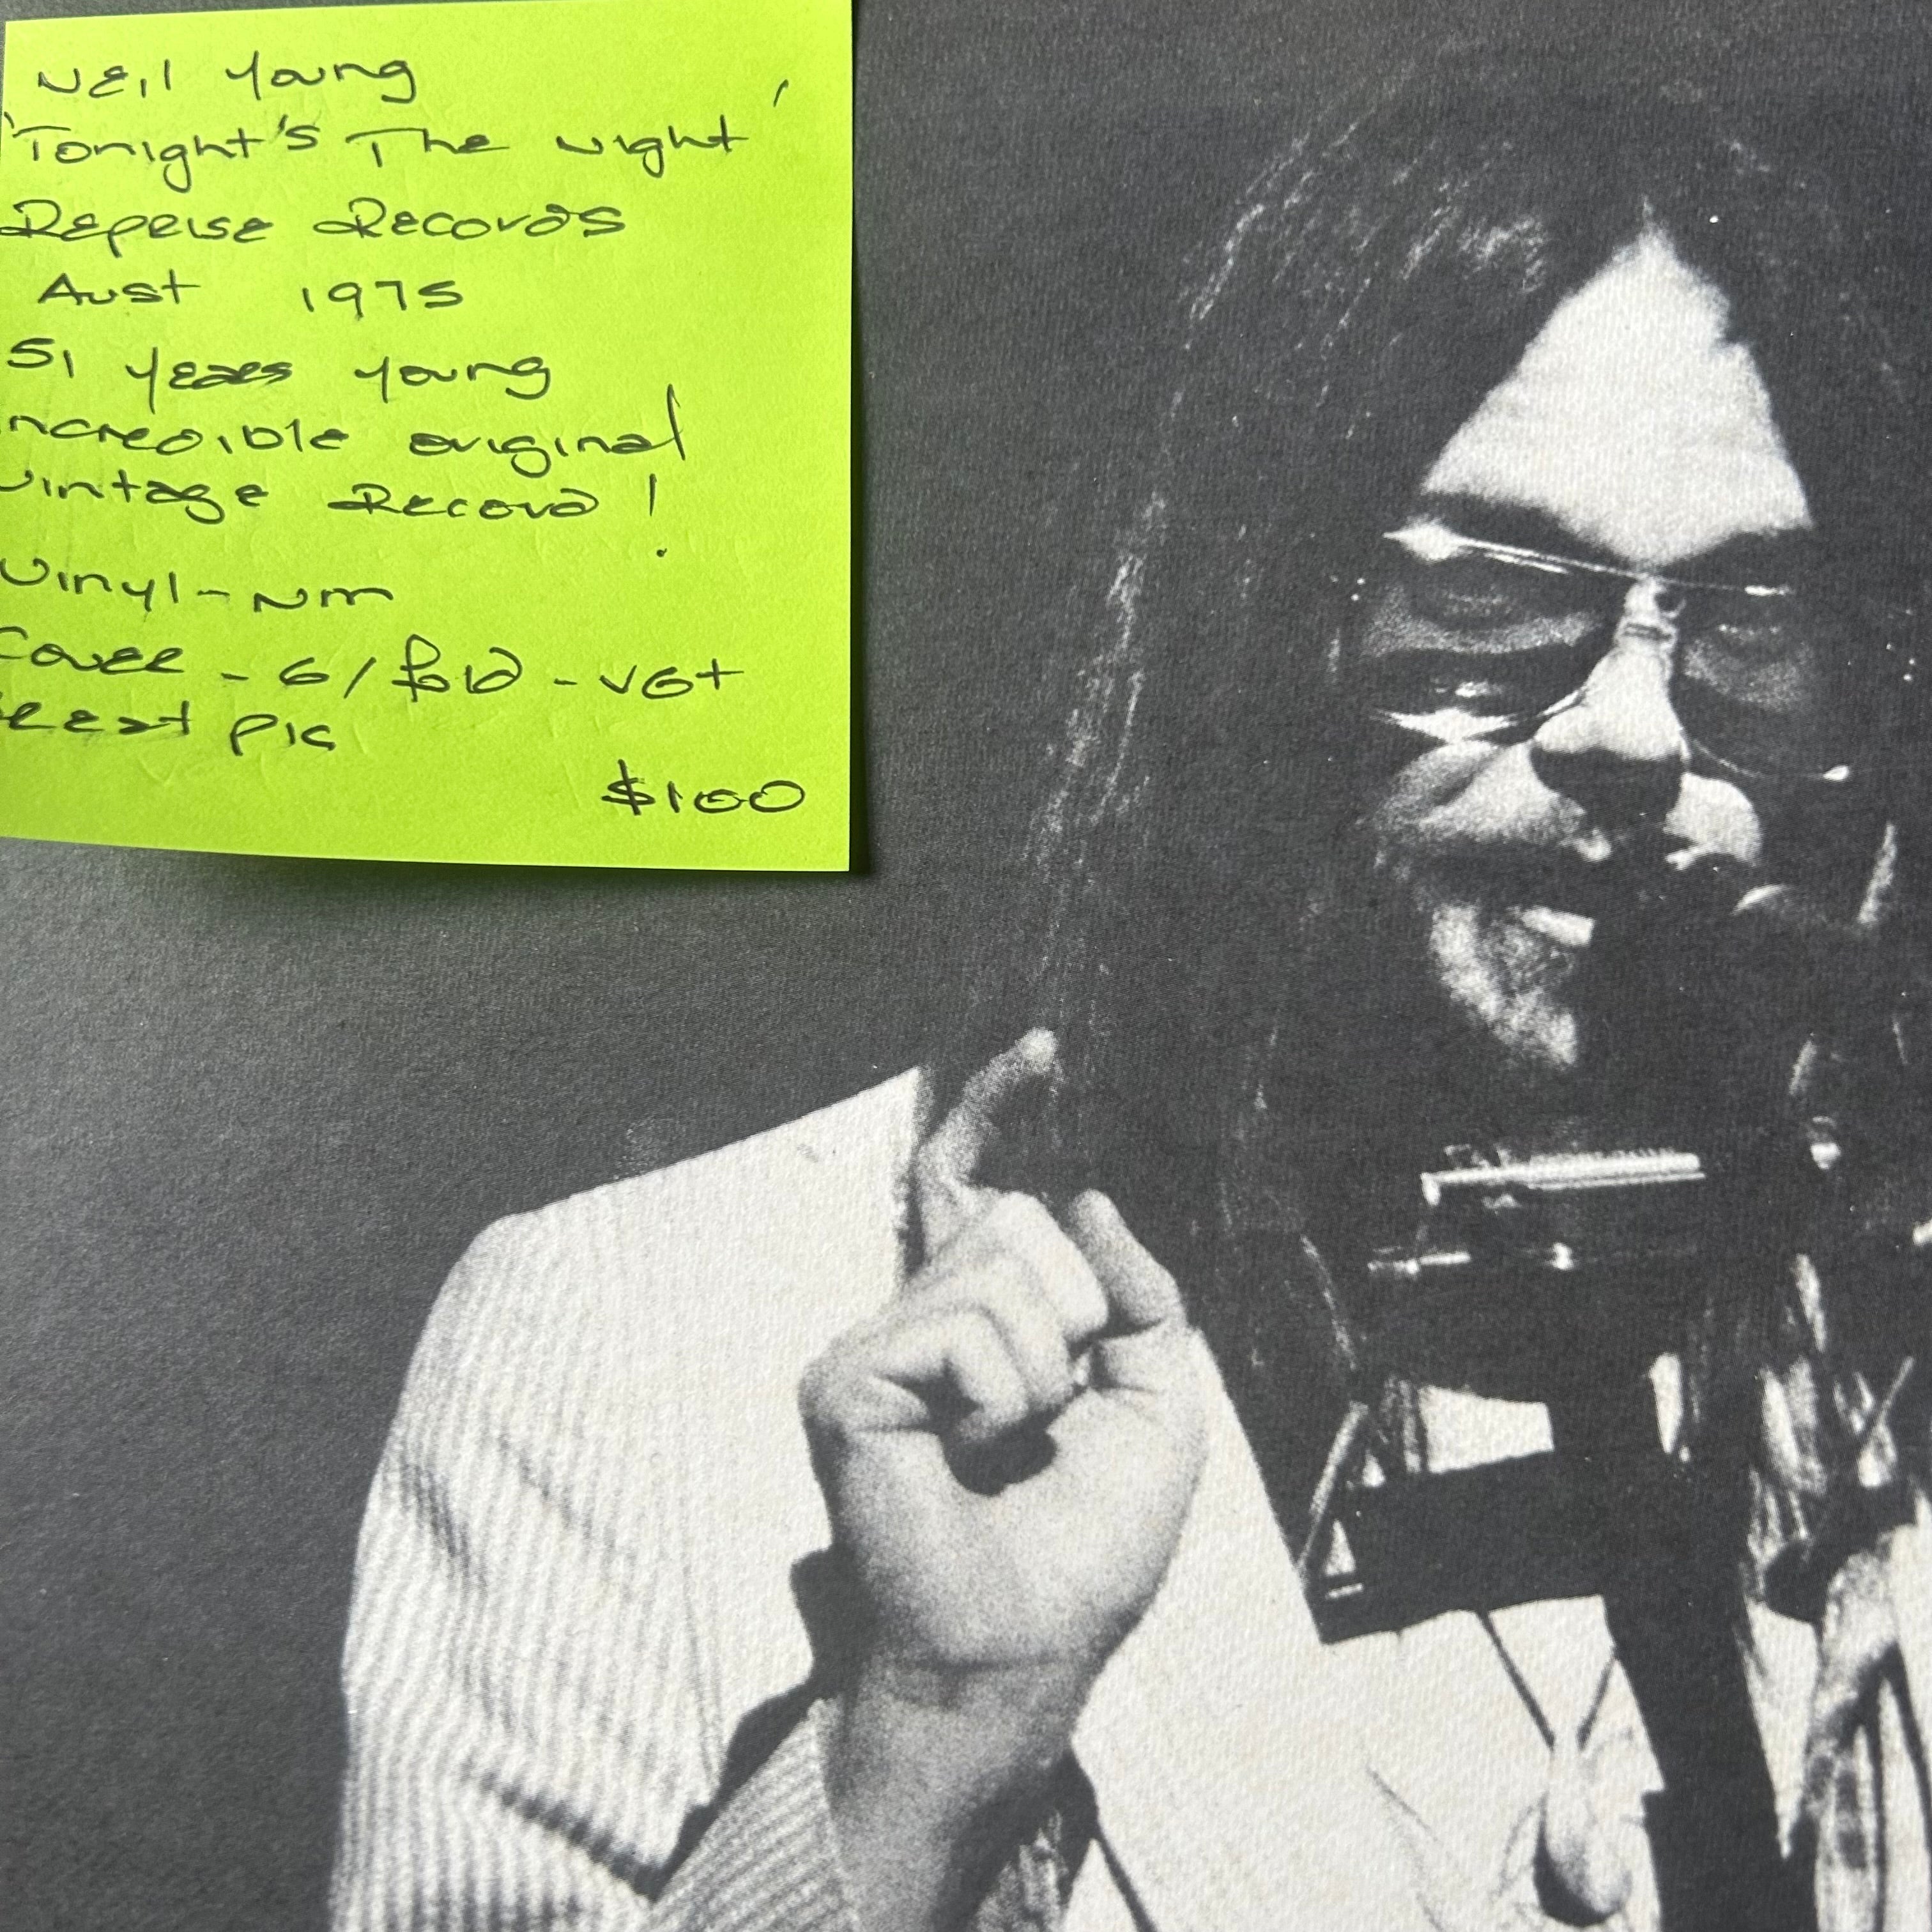 Neil Young
'Tonight's The Night'
Reprise Records
Aust 1975
51 years young
incredible original
vintage Record!
Vinyl - NM
Cover - G/fold - VG+
Great pic
$100